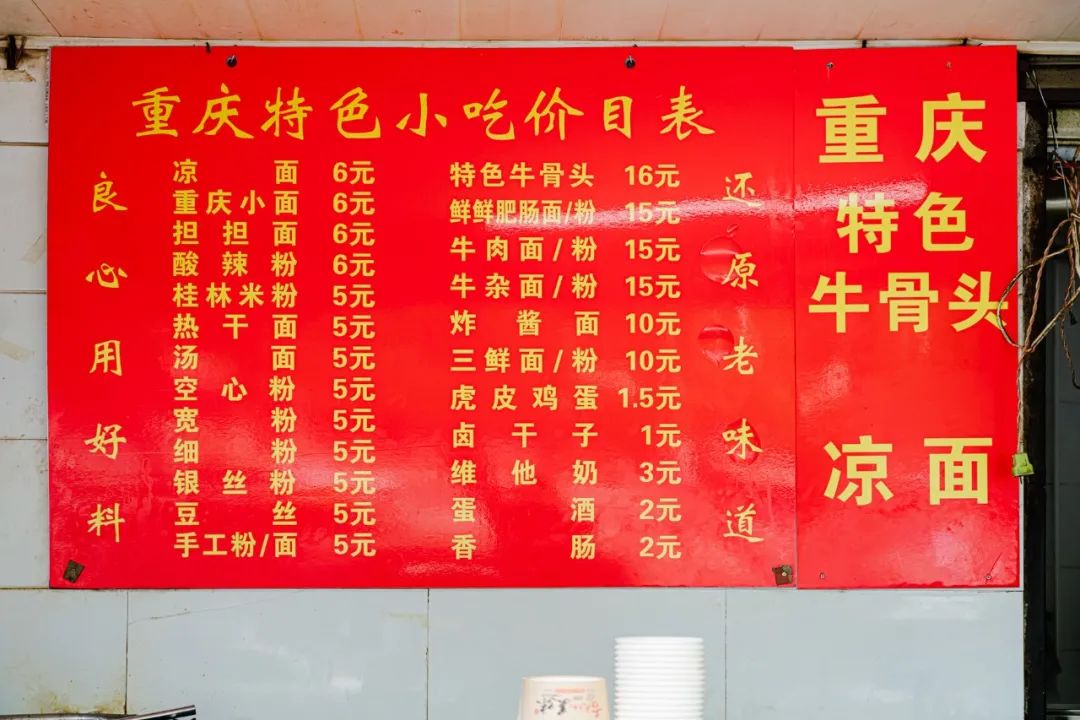 重庆特色小吃价目表
良心用好料
凉面 6元
重庆小面 6元
担担面 6元
酸辣粉 6元
桂林米粉 5元
热干面 5元
汤面 5元
空心粉 5元
宽粉 5元
细粉 5元
银丝粉 5元
豆丝 5元
手工粉/面 5元
特色牛骨头 16元
鲜鲜肥肠面/粉 15元
牛肉面/粉 15元
牛杂面/粉 15元
炸酱面 10元
三鲜面/粉 10元
虎皮鸡蛋 1.5元
卤干子 1元
维他奶 3元
蛋酒 2元
香肠 2元
还原老味道
重庆
特色
牛骨头
凉面